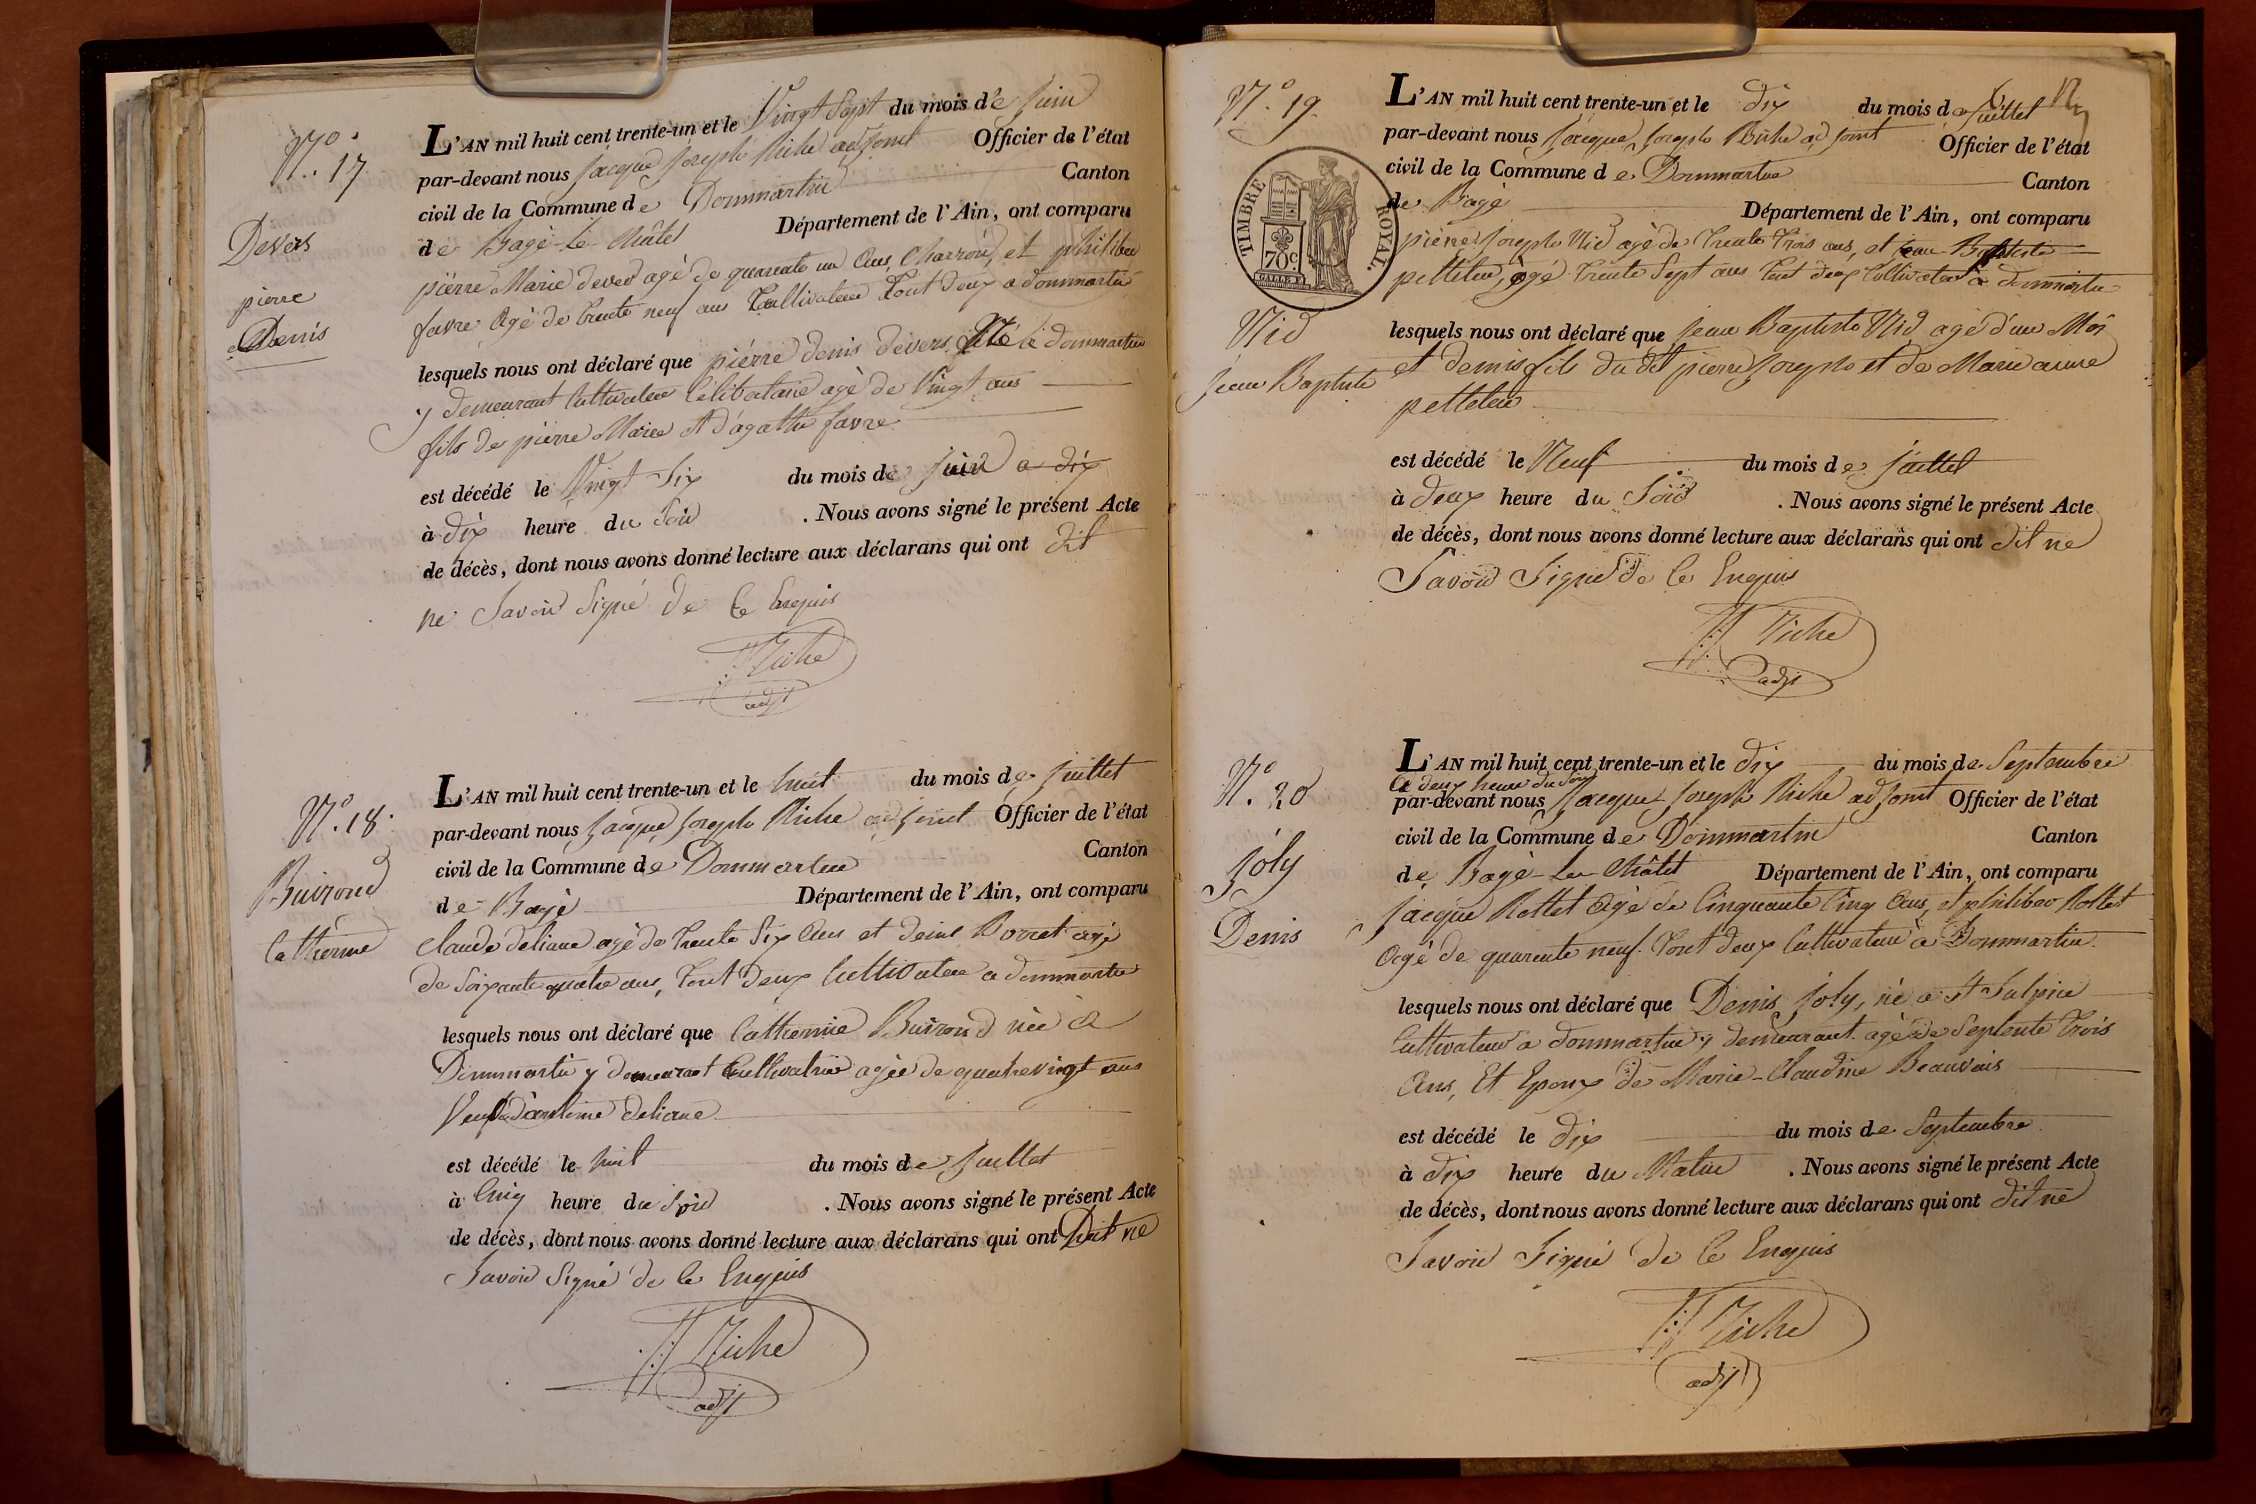 N.° 17
Devers
pierre
Denis
L'AN mil huit cent trente-un et le Vingt Sept du mois de Juin
par-devant nous Jacque Joseph Riche adjoint Officier de l'état
civil de la Commune de Dommartin Canton
de Bagé-le-Châtel Département de l'Ain, ont comparu
pierre Marie devers agé de quarente un ans, Charron, et philiber
favre agé de trente neuf ans Cultivateur Tout deux a dommartin
lesquels nous ont déclaré que pierre denis devers Né à dommartin
y demeurant Cultivateur Célibataire agé de Vingt ans
fils de pierre Marie et d'agathe favre
est décédé le Vingt Six du mois de juin a dix
à dix heure du Soir . Nous avons signé le présent Acte
de décès, dont nous avons donné lecture aux déclarans qui ont dit
ne Savoir Signé de Ce Enquis
JJ Riche
adjt
N.° 18
Buirond
Catherine
L'AN mil huit cent trente-un et le huit du mois de Juillet
par-devant nous Jacque Joseph Riche adjoint Officier de l'état
civil de la Commune de Dommartin Canton
de Bagé Département de l'Ain, ont comparu
Claude deliane agé de trente Six Ans et denis Borret agé
de Soixante quatre ans, Tout Deux Cultivateur a dommartin
lesquels nous ont déclaré que Catherine Buirond née à
Dommartin y demeurant Cultivatrice agée de quatrevingt ans
Veuve d'antoine deliane
est décédé le huit du mois de Juillet
à Cinq heure du Soir . Nous avons signé le présent Acte
de décès, dont nous avons donné lecture aux déclarans qui ont Dit ne
Savoir Signé de Ce Enquis
JJ Riche
adjt
N.° 19
TIMBRE ROYAL.
70c
Nid
Jean Baptiste
L'AN mil huit cent trente-un et le dix du mois de Juillet
par-devant nous Jacque Joseph Riche adjoint Officier de l'état
civil de la Commune de Dommartin Canton
de Bagé Département de l'Ain, ont comparu
pierre Joseph Nid agé de trente trois ans, et jean Baptiste
pelletier, agé trente Sept ans Tout deux Cultivateur à dommartin
lesquels nous ont déclaré que Jean Baptiste Nid agé d'un Moi
et demis fils du dit pierre Joseph et de Marie anne
pelletier
est décédé le Neuf du mois de juillet
à deux heure du Soir . Nous avons signé le présent Acte
de décès, dont nous avons donné lecture aux déclarans qui ont dit ne
Savoir Signé de Ce Enquis
JJ Riche
adjt
N.° 20
Joly
Denis
L'AN mil huit cent trente-un et le dix du mois de Septembre
a deux heure du Soir
par-devant nous Jacque Joseph Riche adjoint Officier de l'état
civil de la Commune de Dommartin Canton
de Bagé-le-Châtel Département de l'Ain, ont comparu
Jacque Rollet agé de Cinquante Cinq Ans, et philiber Rollet
agé de quarente neuf Tout deux Cultivateur à Dommartin
lesquels nous ont déclaré que Denis Joly, né a St Sulpice
Cultivateur a dommartin y demeurant agé de Septente trois
Ans, Et Epoux de Marie-Claudine Beauvais
est décédé le dix du mois de Septembre
à dix heure du Matin . Nous avons signé le présent Acte
de décès, dont nous avons donné lecture aux déclarans qui ont dit ne
Savoir Signé de Ce Enquis
JJ Riche
adjt